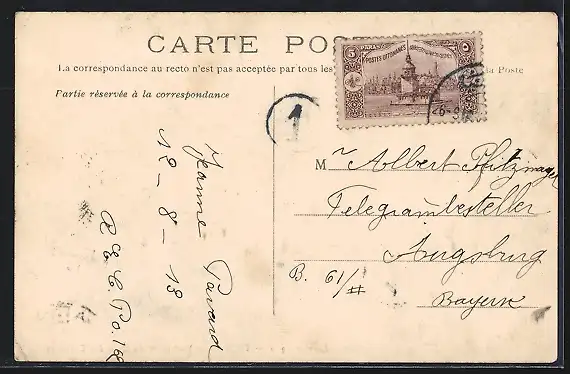 CARTE POS
La correspondance au recto n'est pas acceptée par tous les la Poste
Partie réservée à la correspondance
5 PARA
POSTES OTTOMANES
26-
1
Jeanne Pavard
12-8-13
Mr Albert Pfitzmayer
Telegrambesteller
Augsburg
B. 61/II
Bayern